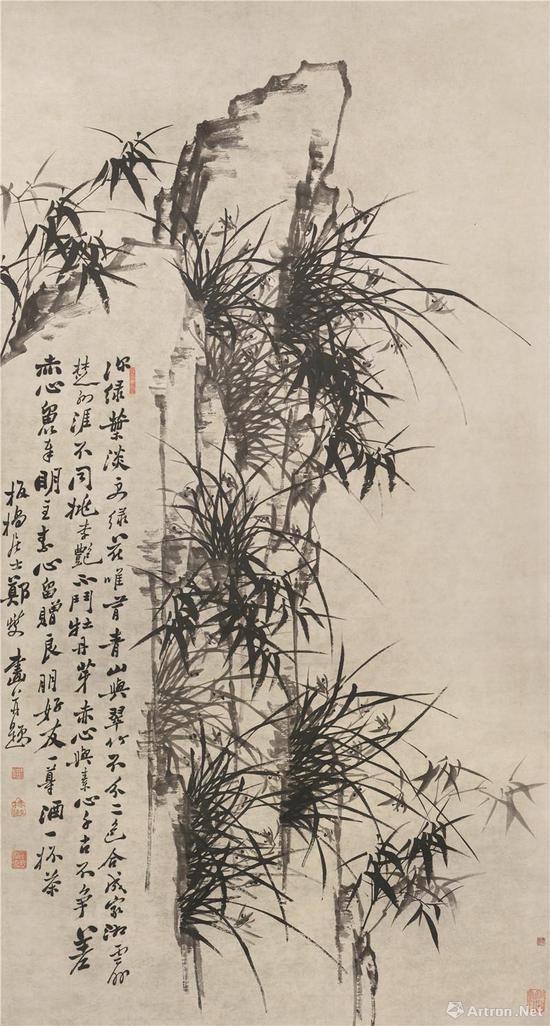 深綠葉淡綠花唯有青山與翠竹不分二色合成家湘雲
楚涯不同桃李艷不鬥牡丹芽赤心與素心千古不争差
赤心留奉明主素心留贈良朋好友一尊酒一杯茶
板橋居士鄭燮畫并題
Artron.Net